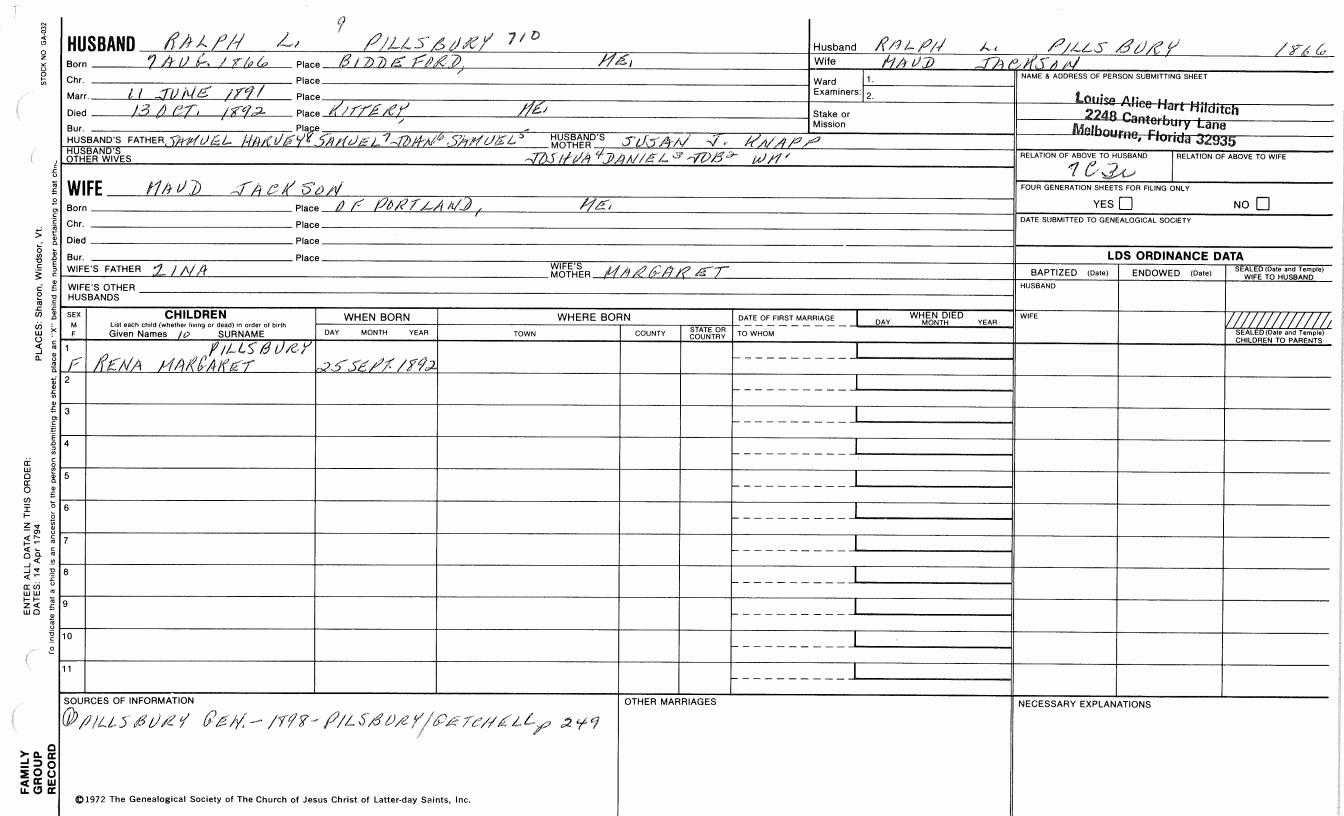 9
HUSBAND RALPH L. PILLSBURY 710
Born 7 AUG. 1866 Place BIDDEFORD, ME.
Chr. Place
Marr. 11 JUNE 1891 Place
Died 13 OCT. 1892 Place KITTERY, ME.
Bur. Place
HUSBAND'S FATHER SAMUEL HARVEY⁸ SAMUEL⁷ JOHN⁶ SAMUEL⁵ HUSBAND'S MOTHER SUSAN J. KNAPP
HUSBAND'S OTHER WIVES JOSHUA⁴ DANIEL³ JOB² WM¹
Husband RALPH L. PILLSBURY 1866
Wife MAUD JACKSON
Ward Examiners: 1.
2.
Stake or Mission
NAME & ADDRESS OF PERSON SUBMITTING SHEET
Louise Alice Hart Hilditch
2248 Canterbury Lane
Melbourne, Florida 32935
RELATION OF ABOVE TO HUSBAND RELATION OF ABOVE TO WIFE
7C3R
FOUR GENERATION SHEETS FOR FILING ONLY
YES NO
DATE SUBMITTED TO GENEALOGICAL SOCIETY
WIFE MAUD JACKSON
Born Place OF PORTLAND, ME.
Chr. Place
Died Place
Bur. Place
WIFE'S FATHER ZINA WIFE'S MOTHER MARGARET
WIFE'S OTHER HUSBANDS
LDS ORDINANCE DATA
BAPTIZED (Date) ENDOWED (Date) SEALED (Date and Temple) WIFE TO HUSBAND
HUSBAND
WIFE
SEALED (Date and Temple) CHILDREN TO PARENTS
SEX M F
CHILDREN
List each child (whether living or dead) in order of birth
Given Names 10 SURNAME
WHEN BORN
DAY MONTH YEAR
WHERE BORN
TOWN COUNTY STATE OR COUNTRY
DATE OF FIRST MARRIAGE
TO WHOM
WHEN DIED
DAY MONTH YEAR
1 PILLSBURY
F RENA MARGARET 25 SEPT. 1892
2
3
4
5
6
7
8
9
10
11
SOURCES OF INFORMATION
① PILLSBURY GEN. - 1898 - PILSBURY/GETCHELL p 249
OTHER MARRIAGES
NECESSARY EXPLANATIONS
©1972 The Genealogical Society of The Church of Jesus Christ of Latter-day Saints, Inc.
STOCK NO GA-032
PLACES: Sharon, Windsor, Vt.
ENTER ALL DATA IN THIS ORDER:
DATES: 14 Apr 1794
To indicate that a child is an ancestor of the person submitting the sheet, place an "X" behind the number pertaining to that
FAMILY
GROUP
RECORD